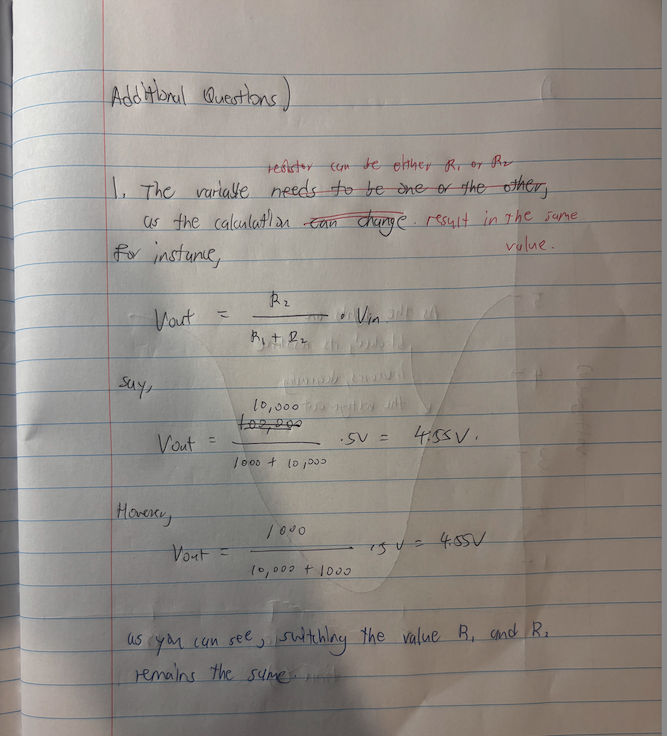 Additional Questions)
resistor can be either R₁ or R₂
1. The variable needs to be one or the other,
as the calculation can change. result in the same
for instance, value.
Vout = R₂ / R₁ + R₂ · Vin
say,
10,000
Vout = 100,000 / 1000 + 10,000 · 5V = 4.55V.
However,
Vout = 1000 / 10,000 + 1000 · 5V = 4.55V
as you can see, switching the value R₁ and R₂
remains the same.